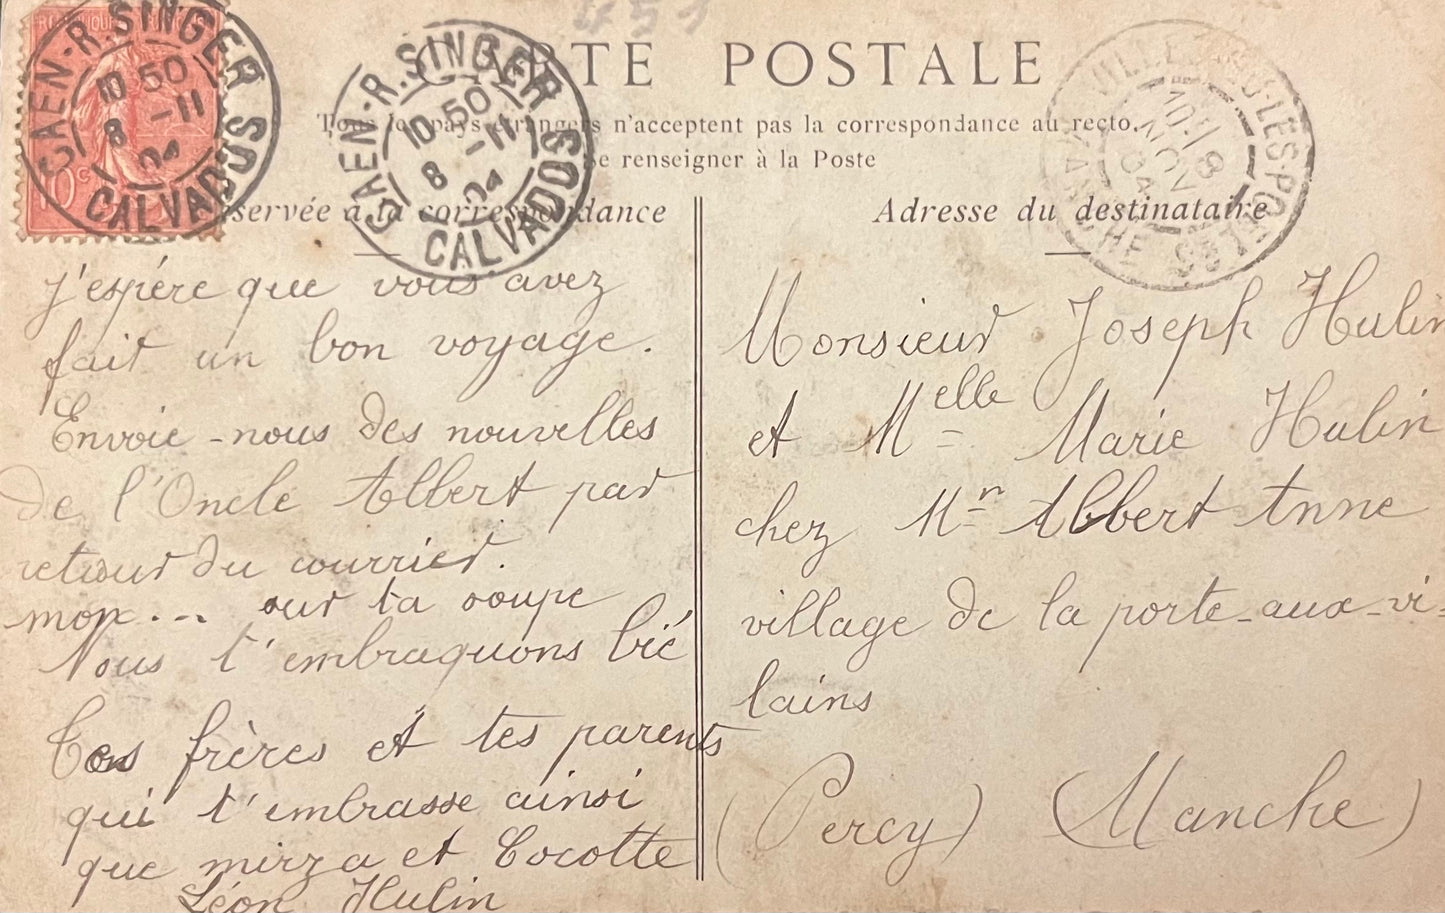 451
CARTE POSTALE
Tous les pays étrangers n'acceptent pas la correspondance au recto.
Se renseigner à la Poste
réservée à la correspondance
Adresse du destinataire
RÉPUBLIQUE
10c
CAEN - R. SINGER
10 50
8 - 11
04
CALVADOS
CAEN - R. SINGER
10 50
8 - 11
04
CALVADOS
VILLEDIEU-LES-POELES
8
NOV
04
MANCHE
j'espére que vous avez
fait un bon voyage.
Envoie-nous des nouvelles
de l'Oncle Albert par
retour du courrier.
mon... sur ta soupe
Nous t'embraquons bié
Tes frères et tes parents
qui t'embrasse ainsi
que mirza et Cocotte
Léon Hulin
Monsieur Joseph Hulin
et Melle Marie Hulin
chez Mr Albert Anne
village de la porte-aux-vi-
lains
(Percy) (Manche)